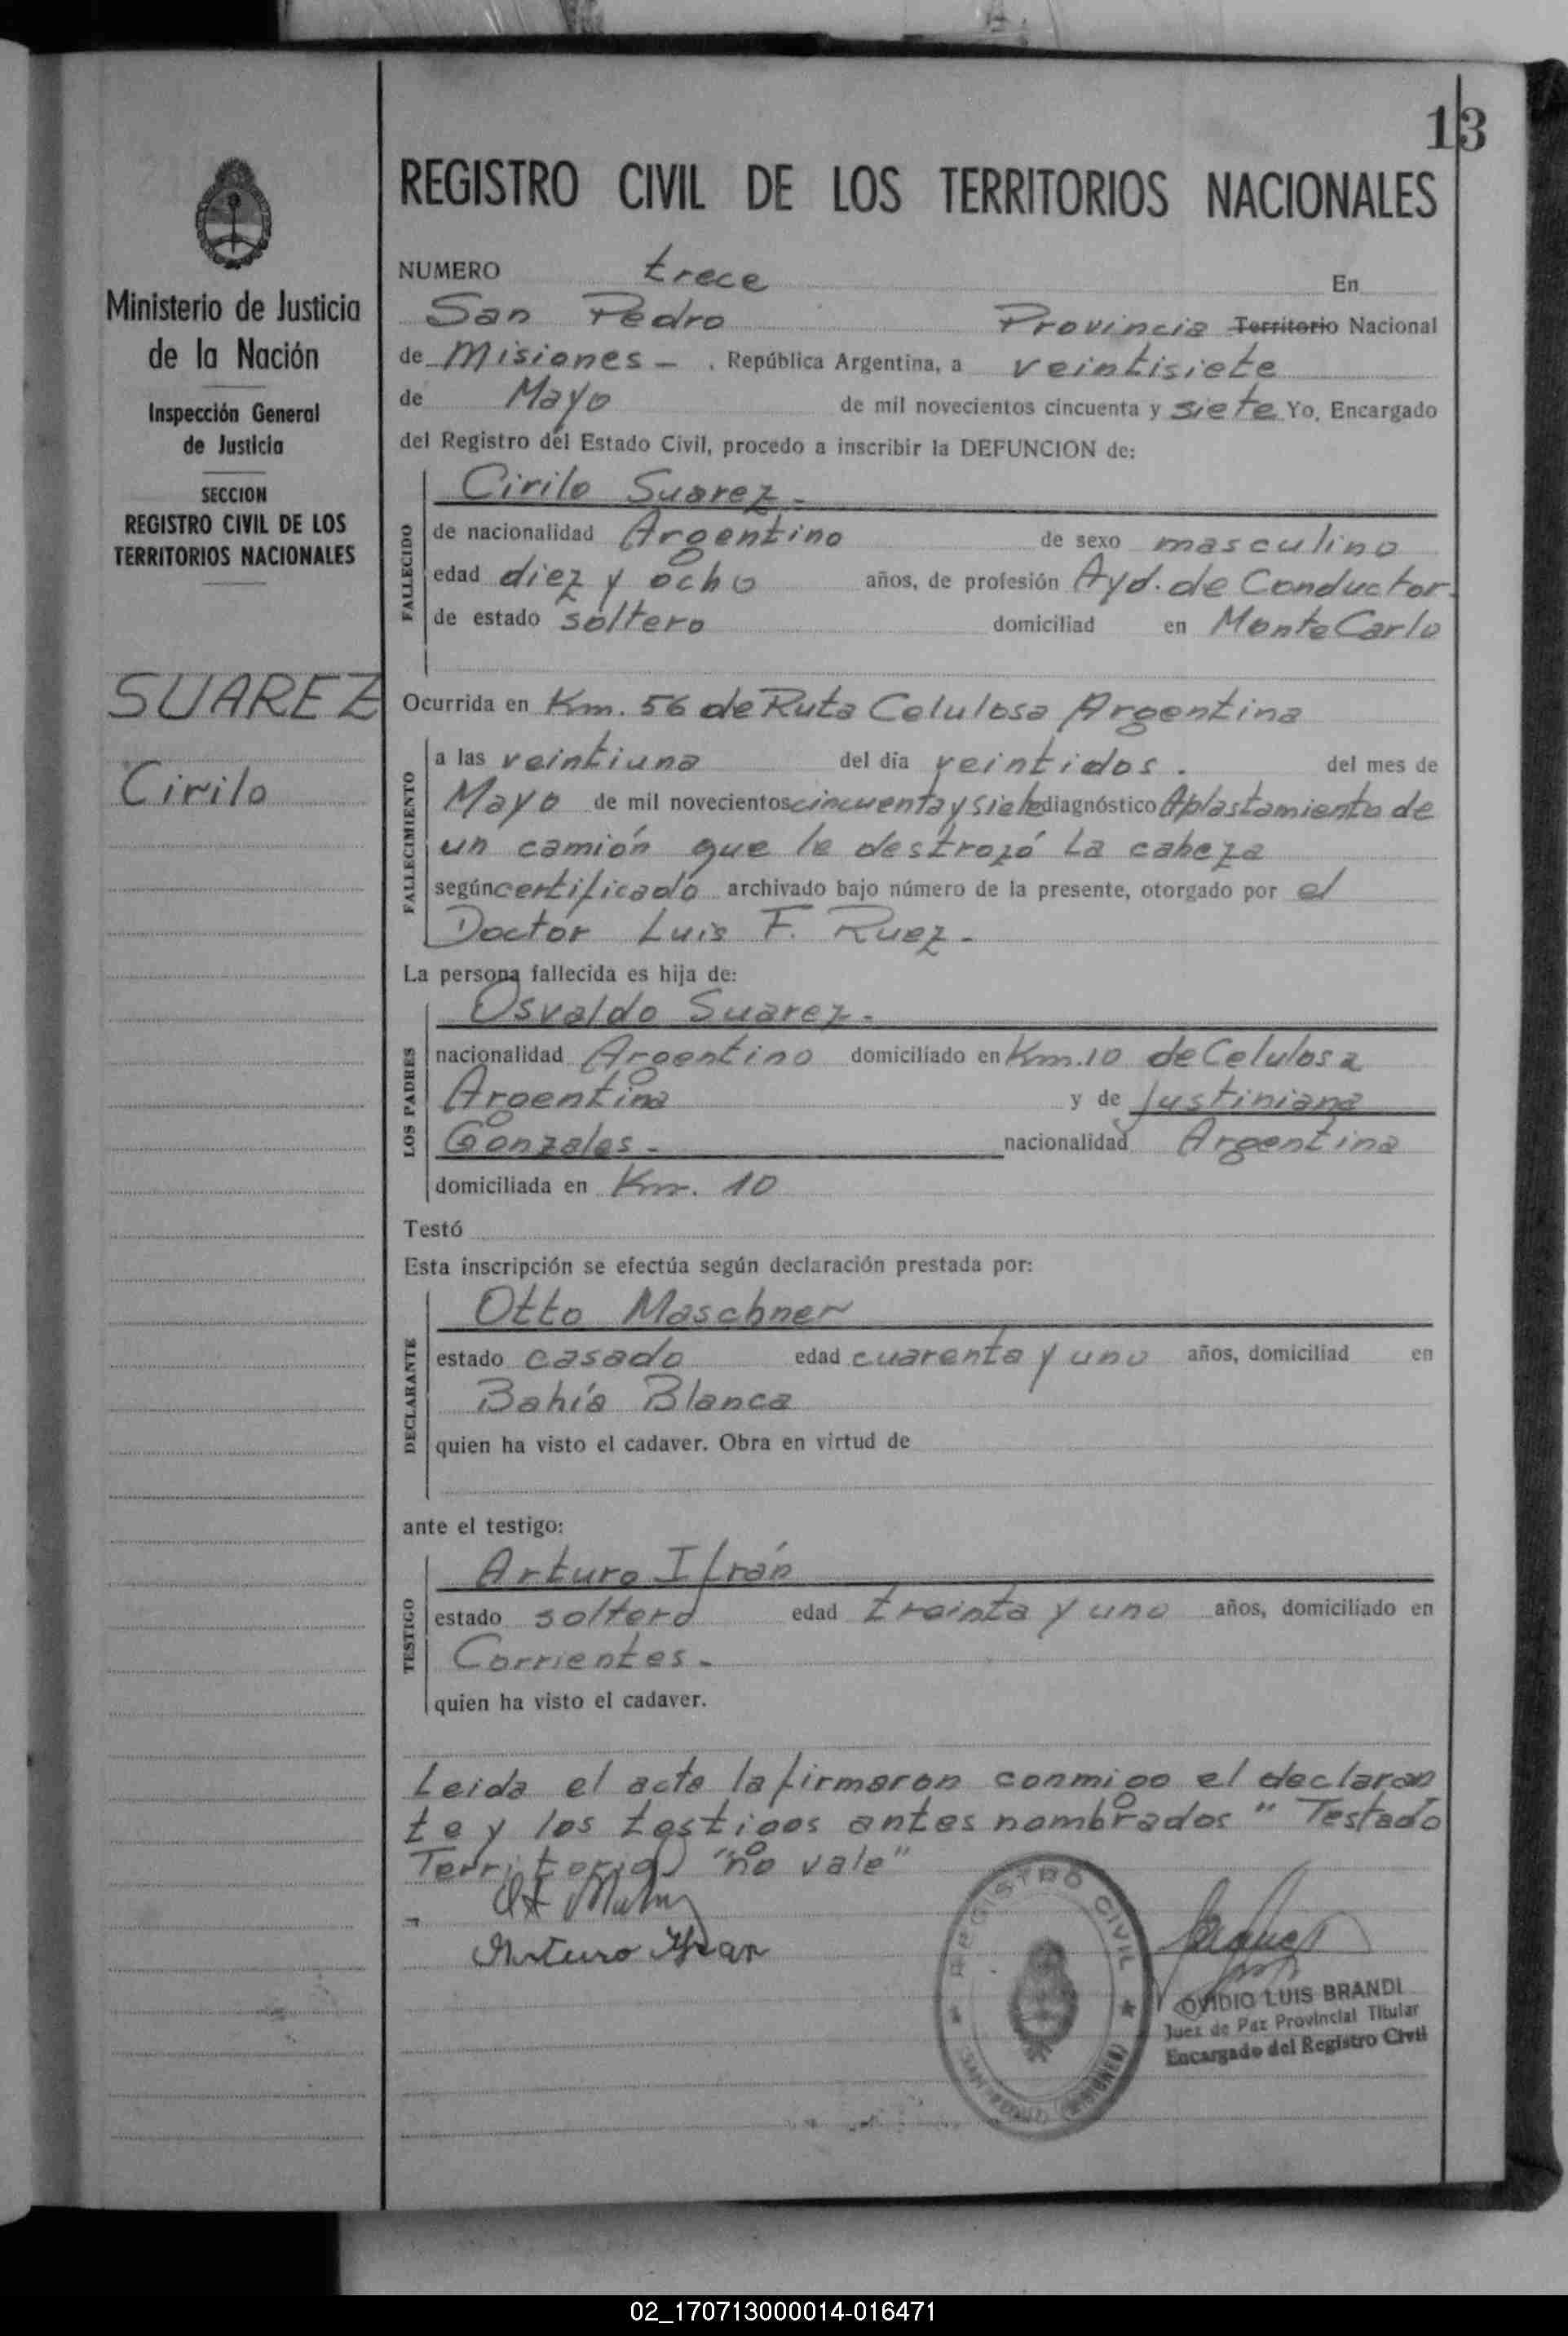 13
REGISTRO CIVIL DE LOS TERRITORIOS NACIONALES
Ministerio de Justicia
de la Nación
Inspección General
de Justicia
SECCION
REGISTRO CIVIL DE LOS
TERRITORIOS NACIONALES
SUAREZ
Cirilo
NUMERO trece En
San Pedro Provincia Territorio Nacional
de Misiones - . República Argentina, a veintisiete
de Mayo de mil novecientos cincuenta y siete Yo, Encargado
del Registro del Estado Civil, procedo a inscribir la DEFUNCION de:
FALLECIDO
Cirilo Suarez -
de nacionalidad Argentino de sexo masculino
edad diez y ocho años, de profesión Ayd. de Conductor.
de estado soltero domiciliad en Monte Carlo
Ocurrida en Km. 56 de Ruta Celulosa Argentina
FALLECIMIENTO
a las veintiuna del día veintidos . del mes de
Mayo de mil novecientos cincuenta y siete diagnóstico Aplastamiento de
un camión que le destrozó la cabeza
según certificado archivado bajo número de la presente, otorgado por el
Doctor Luis F. Ruez -
La persona fallecida es hija de:
LOS PADRES
Osvaldo Suarez -
nacionalidad Argentino domiciliado en Km. 10 de Celulosa
Argentina y de Justiniana
Gonzales - nacionalidad Argentina
domiciliada en Km. 10
Testó
Esta inscripción se efectúa según declaración prestada por:
DECLARANTE
Otto Maschner
estado casado edad cuarenta y uno años, domiciliad en
Bahía Blanca
quien ha visto el cadaver. Obra en virtud de
ante el testigo:
TESTIGO
Arturo Ifrán
estado soltero edad treinta y uno años, domiciliado en
Corrientes -
quien ha visto el cadaver.
Leida el acta la firmaron conmigo el declaran
te y los testigos antes nombrados " Testado
Territorio "no vale"
Arturo Ifran
REGISTRO CIVIL
SAN PEDRO (MISIONES)
OVIDIO LUIS BRANDI
Juez de Paz Provincial Titular
Encargado del Registro Civil
02_170713000014-016471